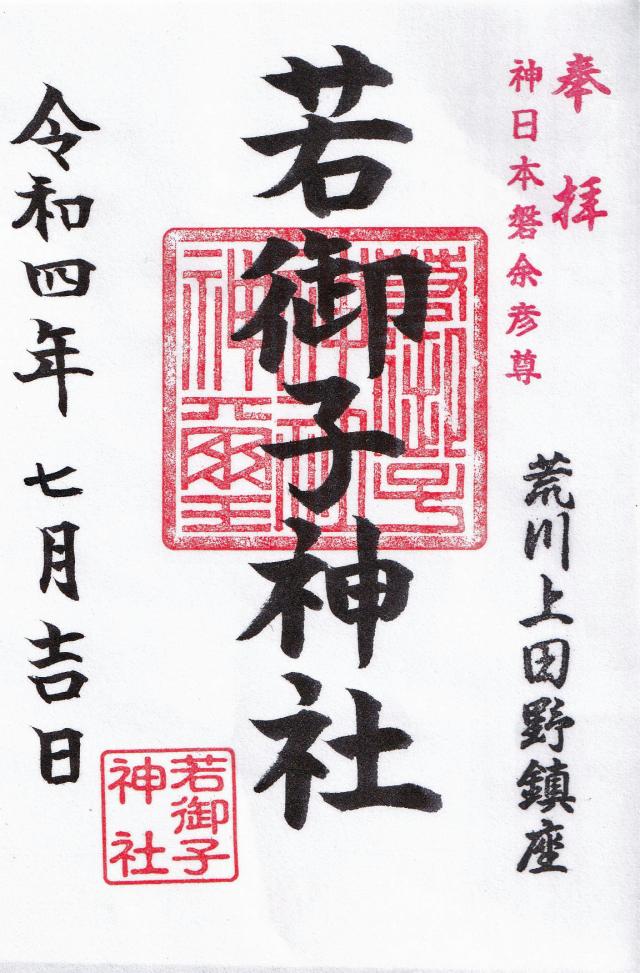 奉拝
神日本磐余彦尊
荒川上田野鎮座
若御子神社
令和四年 七月吉日
若御子
神社